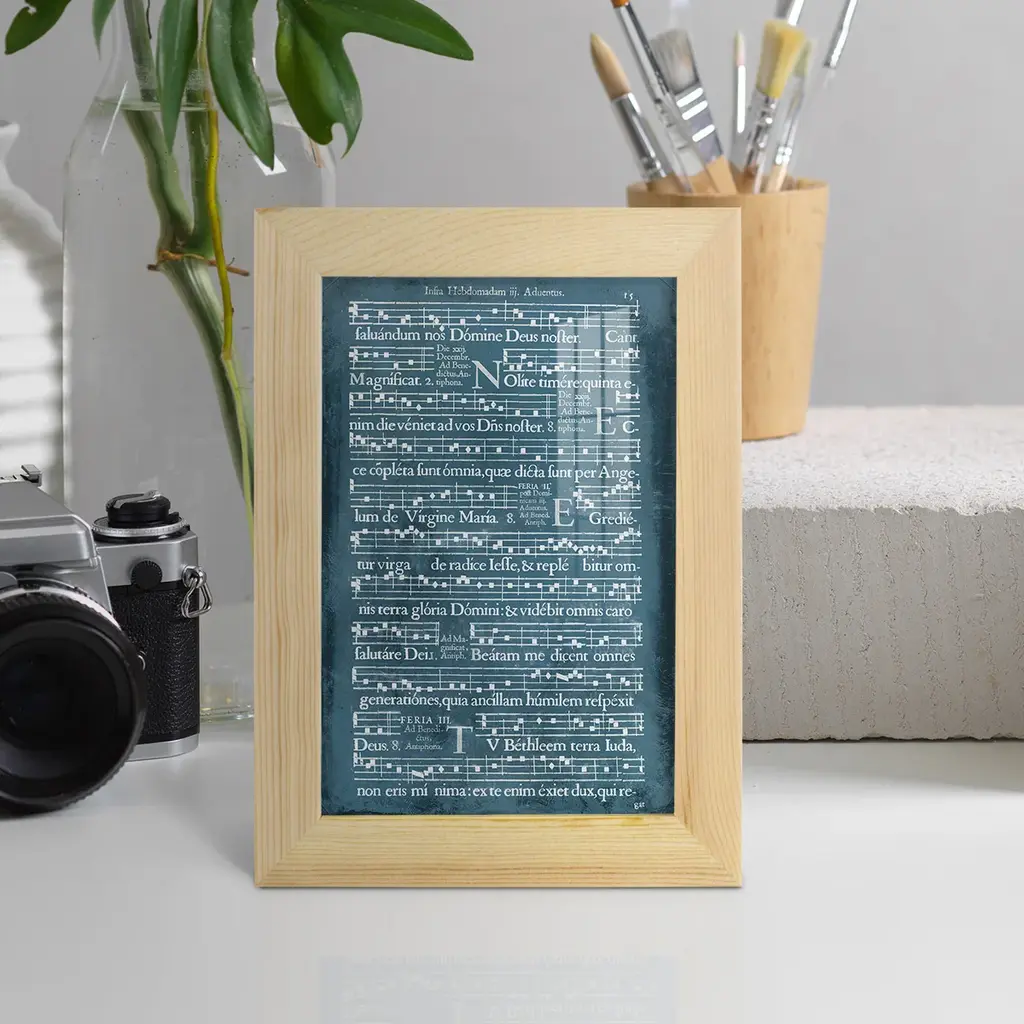 Infra Hebdomadam iij. Aduentus. 15
ſaluándum nos Dómine Deus noſter. Cant.
Magníficat. 2. Die xxij. Decembr. Ad Bene-dictus. An-tiphona. NOlíte timére: quinta e-
nim die véniet ad vos Dñs noſter. 8. Die xxiij. Decembr. Ad Bene-dictus An-tiphona. EC-
ce cõpléta ſunt ómnia, quæ dicta ſunt per Ange-
lum de Vírgine María. 8. FERIA II. Ad Bened. Antiph. EGredié-
tur virga de radíce Ieſſe, & replé bitur om-
nis terra glória Dómini: & vidébit omnis caro
ſalutáre Dei. Ad Ma-gnificat, Antiph. Beátam me dicent omnes
generatiónes, quia ancíllam húmilem reſpéxit
Deus. 8. FERIA III. Ad Benedi-ctus, Antiphona. TV Béthleem terra Iuda,
non eris mí nima: ex te enim éxiet dux, qui re-
gat